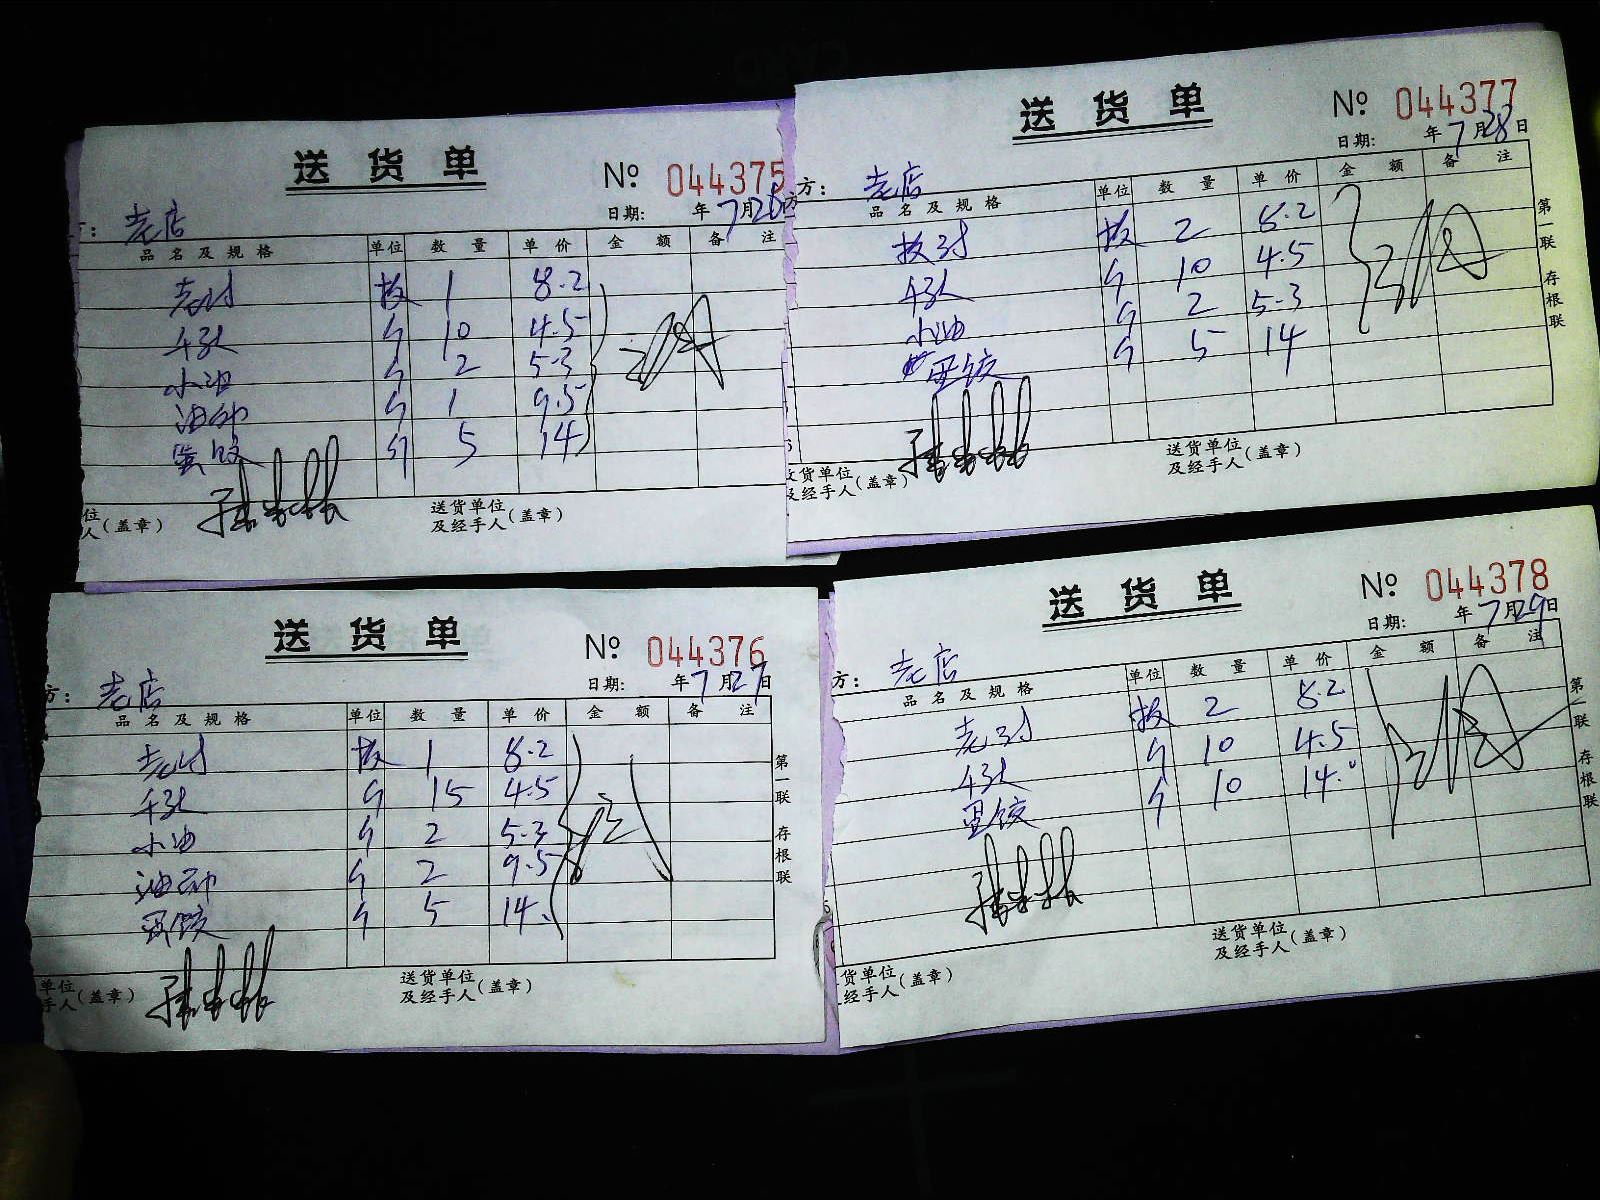 送货单
№ 044375
日期: 年7月26
老店
品名及规格 单位 数量 单价 金额 备注
板 1 8.2
千张 个 10 4.5
小油 个 2 5.3
油 个 1 9.5
蛋饺 个 5 14
位
人(盖章)
送货单位
及经手人(盖章)
送货单
№ 044377
日期: 年7月28日
方: 老店
品名及规格 单位 数量 单价 金额 备注
板 板 2 8.2
千张 个 10 4.5
小油 个 2 5.3
蛋饺 个 5 14
第一联 存根联
收货单位
及经手人(盖章)
送货单位
及经手人(盖章)
送货单
№ 044376
日期: 年7月27日
方: 老店
品名及规格 单位 数量 单价 金额 备注
板 1 8.2
千张 个 15 4.5
小油 个 2 5.3
油 个 2 9.5
蛋饺 个 5 14.
第一联 存根联
单位
手人(盖章)
送货单位
及经手人(盖章)
送货单
№ 044378
日期: 年7月29日
方: 老店
品名及规格 单位 数量 单价 金额 备注
板 2 8.2
千张 个 10 4.5
蛋饺 个 10 14.
第一联 存根联
货单位
经手人(盖章)
送货单位
及经手人(盖章)